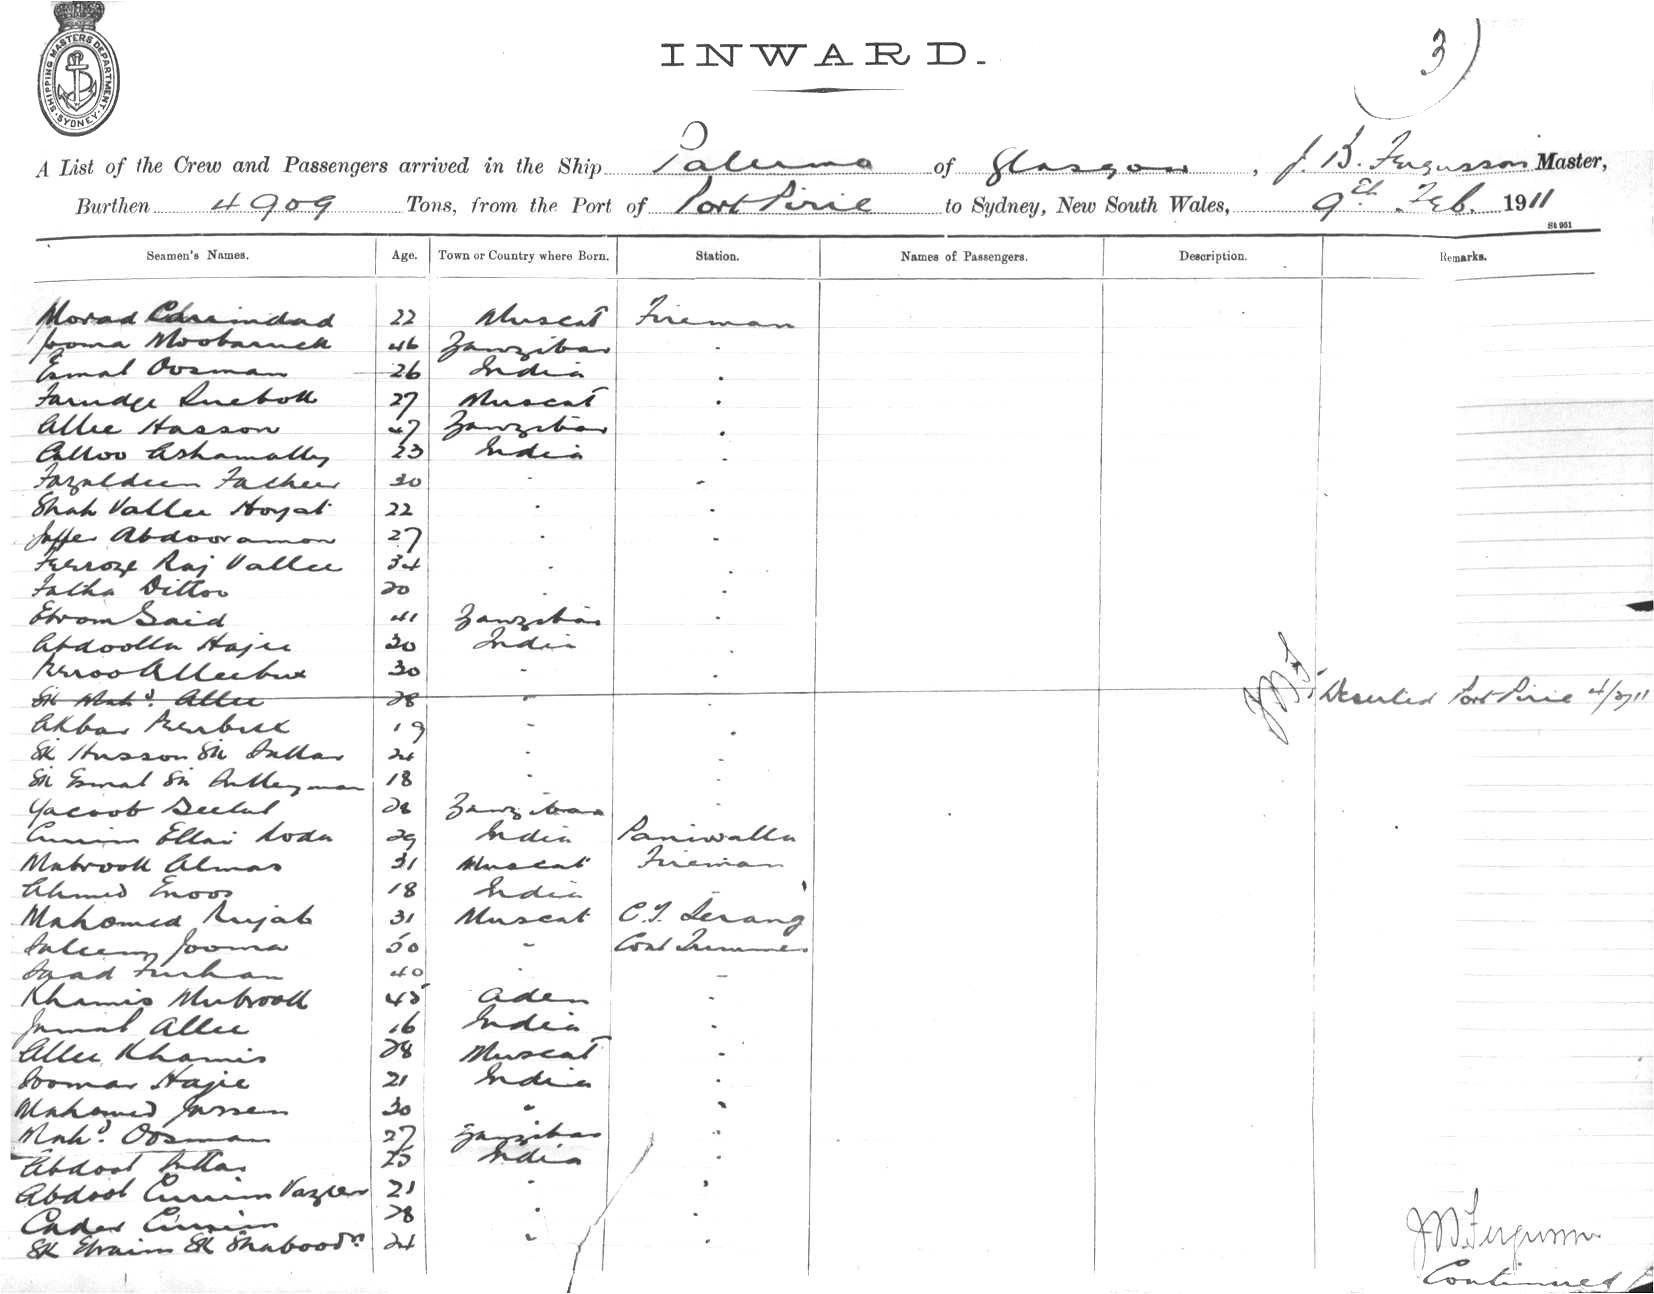 SHIPPING MASTERS DEPARTMENT
SYDNEY
INWARD.
3
A List of the Crew and Passengers arrived in the Ship Palermo of Glasgow, J. B. Fergusson Master,
Burthen 4909 Tons, from the Port of Port Pirie to Sydney, New South Wales, 9th Feb. 1911
St 951
Seamen's Names. Age. Town or Country where Born. Station. Names of Passengers. Description. Remarks.
Morad 22 Muscat Fireman
Jooma Moobaruck 46 Zanzibar "
Esmal Oosman 26 India "
27 Muscat "
Allee Hasson 47 Zanzibar "
Alloo 23 India "
Fazaldeen 30 " "
Shah Vallee Hoyat 22 " "
Jaffer Abdooramon 27 " "
Feeroze Raj Vallee 34 " "
Fatha Dittoo 20 " "
Ebrom Said 41 Zanzibar "
Abdoolla Hajee 30 India "
Alleebux 30 " "
Sk Mahd. Allee 28 " " Deserted Port Pirie 4/2/11
Akbar 19 " "
Sk Husson Sk Sattar 24 " "
Sk Esmal Sk 18 " "
Yacoob 28 Zanzibar "
29 India Paniwalla
Mabrook Almas 31 Muscat Fireman
Ahmed Enoos 18 India "
Mahomed Rujab 31 Muscat C. T. Serang
Saleem Jooma 50 " Coal Trimmer
Saad Furhan 40 " "
Khamis Mubrook 45 Aden "
Jumal Allee 16 India "
Allee Khamis 28 Muscat "
Soomar Hajee 21 India "
Mahomed 30 " "
Mahd. Oosman 27 Zanzibar "
Abdool Sattar 25 India "
Abdool Currim Vazeer 21 " "
Cader Currim 28 " "
Sk Ebraim Sk 24 " "
J B Fergusson
Continued